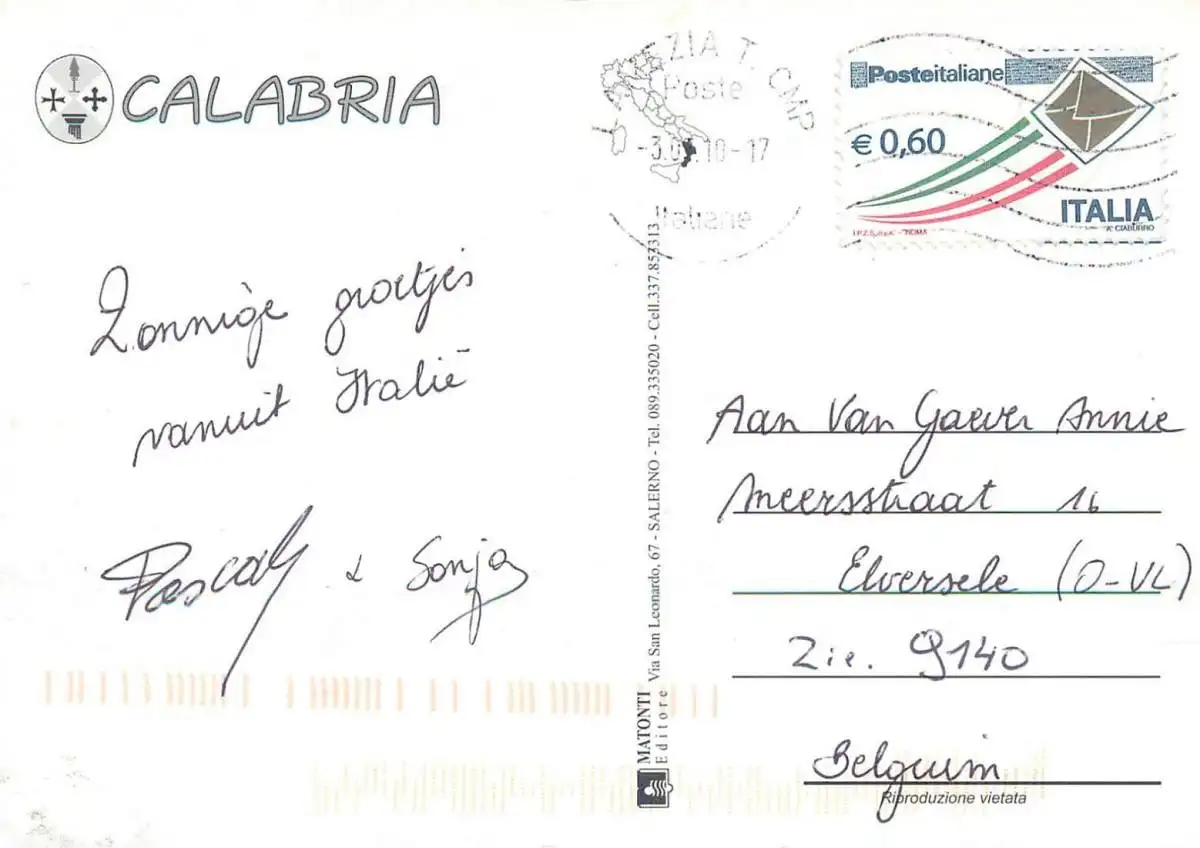 CALABRIA
ZIA T. CMP
Poste
10-17
Italiane
Posteitaliane
€ 0,60
ITALIA
A. CIABURRO
I.P.Z.S. S.p.A. - ROMA
Zonnige groetjes
vanuit Italië
Pascal & Sonja
MATONTI
Editore Via San Leonardo, 67 - SALERNO - Tel. 089.335020 - Cell.337.853313
Aan Van Gaever Annie
Meersstraat 16
Elversele (O-VL)
Zie. 9140
Belguim
Riproduzione vietata